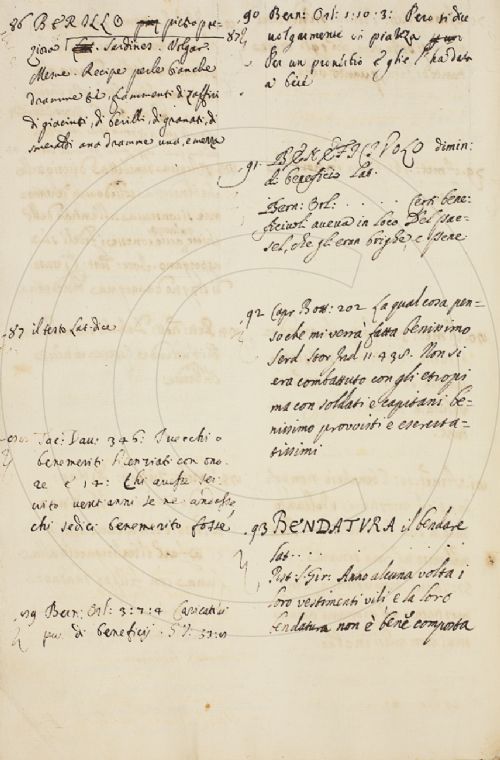 86 BERILLO pietra pre-
ziosa. Sardines. Volgar.
Mesue. Recipe perle bianche
dramme tre, frammenti di zaffiri
di giacinti, di berilli, di granati, di
smeraldi ana dramme una, e mezza
87 il testo Lat. dice
Tac: Dau: 346: I vecchi o
benemeriti licenziati con ono-
re e 12: Chi avesse ser-
vito venti anni se ne andasse,
chi sedici benemerito fosse
89 Bern: Orl: 3: 7: 4 Caricati
pur di benefizj
90 Bern: Orl: 1: 10: 3: Però si dice
volgarmente in piazza
Per un puntiglio
91 BENEFICIVOLO dimin:
di beneficio Lat.
Bern: Orl. . . . . . Certi bene-
ficivoli aveva in loco Del pae-
sel, che gli eran brighe, e pene
92 Capr: Bott: 202 La qual cosa pen-
so che mi verrà fatta benissimo
Serd. Stor. Ind. 11. 438. Non si
era combattuto con gli etiopi
ma con soldati e capitani be-
nissimo provvisti e esercita-
tissimi
93 BENDATURA il bendare
Lat. . . .
Pist. S. Gir: Anno alcuna volta i
loro vestimenti vili e la loro
bendatura non è bene composta